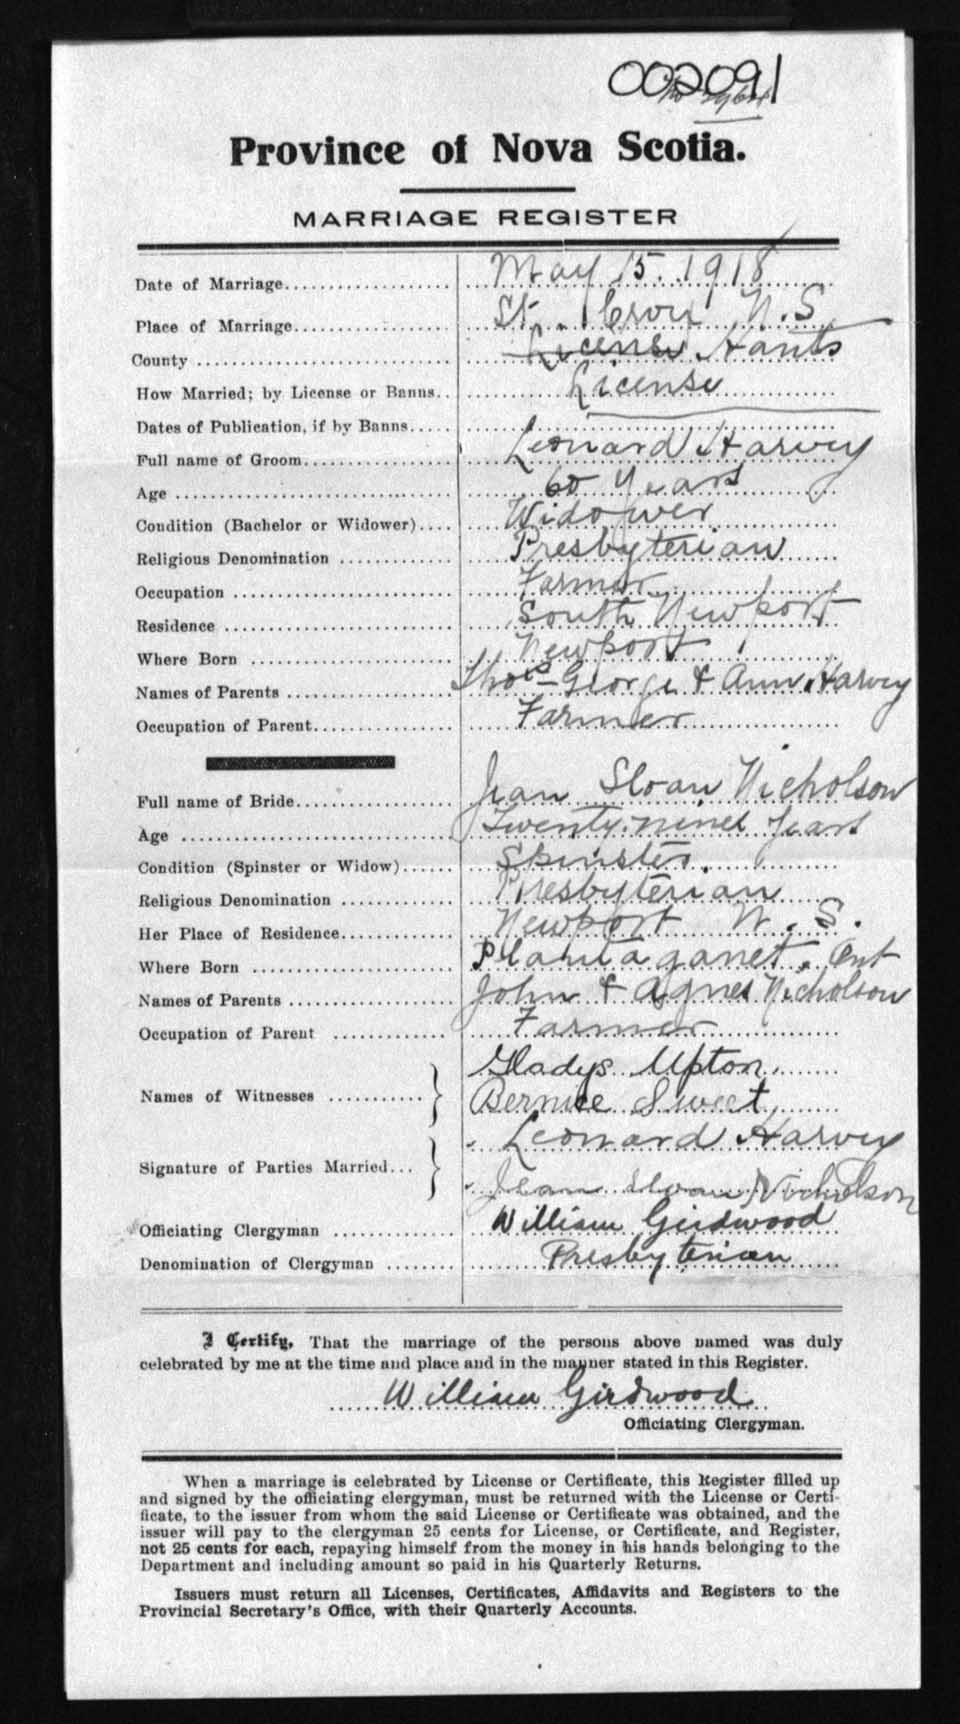 002091
No
Province of Nova Scotia.
MARRIAGE REGISTER
Date of Marriage.................... May 15. 1918
Place of Marriage................... St. Croix N.S.
County .............................. License Hants
How Married; by License or Banns.. License
Dates of Publication, if by Banns.....
Full name of Groom.................. Leonard Harvey
Age ................................. 60 Years
Condition (Bachelor or Widower).... Widower
Religious Denomination ............. Presbyterian
Occupation .......................... Farmer
Residence ........................... South Newport
Where Born ......................... Newport
Names of Parents ................... Thos George & Ann Harvey
Occupation of Parent................ Farmer
Full name of Bride.................. Jean Sloan Nicholson
Age ................................. Twenty nine Years
Condition (Spinster or Widow)...... Spinster.
Religious Denomination ............ Presbyterian
Her Place of Residence............. Newport N. S.
Where Born ........................ Plantaganet. Ont
Names of Parents .................. John & Agnes Nicholson
Occupation of Parent .............. Farmer
Names of Witnesses ........... } Gladys Upton.
Bernice Sweet
Signature of Parties Married... } Leonard Harvey
Jean Sloan Nicholson
Officiating Clergyman ............. William Girdwood
Denomination of Clergyman ........ Presbyterian
I Certify, That the marriage of the persons above named was duly
celebrated by me at the time and place and in the manner stated in this Register.
William Girdwood
Officiating Clergyman.
When a marriage is celebrated by License or Certificate, this Register filled up
and signed by the officiating clergyman, must be returned with the License or Certi-
ficate, to the issuer from whom the said License or Certificate was obtained, and the
issuer will pay to the clergyman 25 cents for License, or Certificate, and Register,
not 25 cents for each, repaying himself from the money in his hands belonging to the
Department and including amount so paid in his Quarterly Returns.
Issuers must return all Licenses, Certificates, Affidavits and Registers to the
Provincial Secretary's Office, with their Quarterly Accounts.